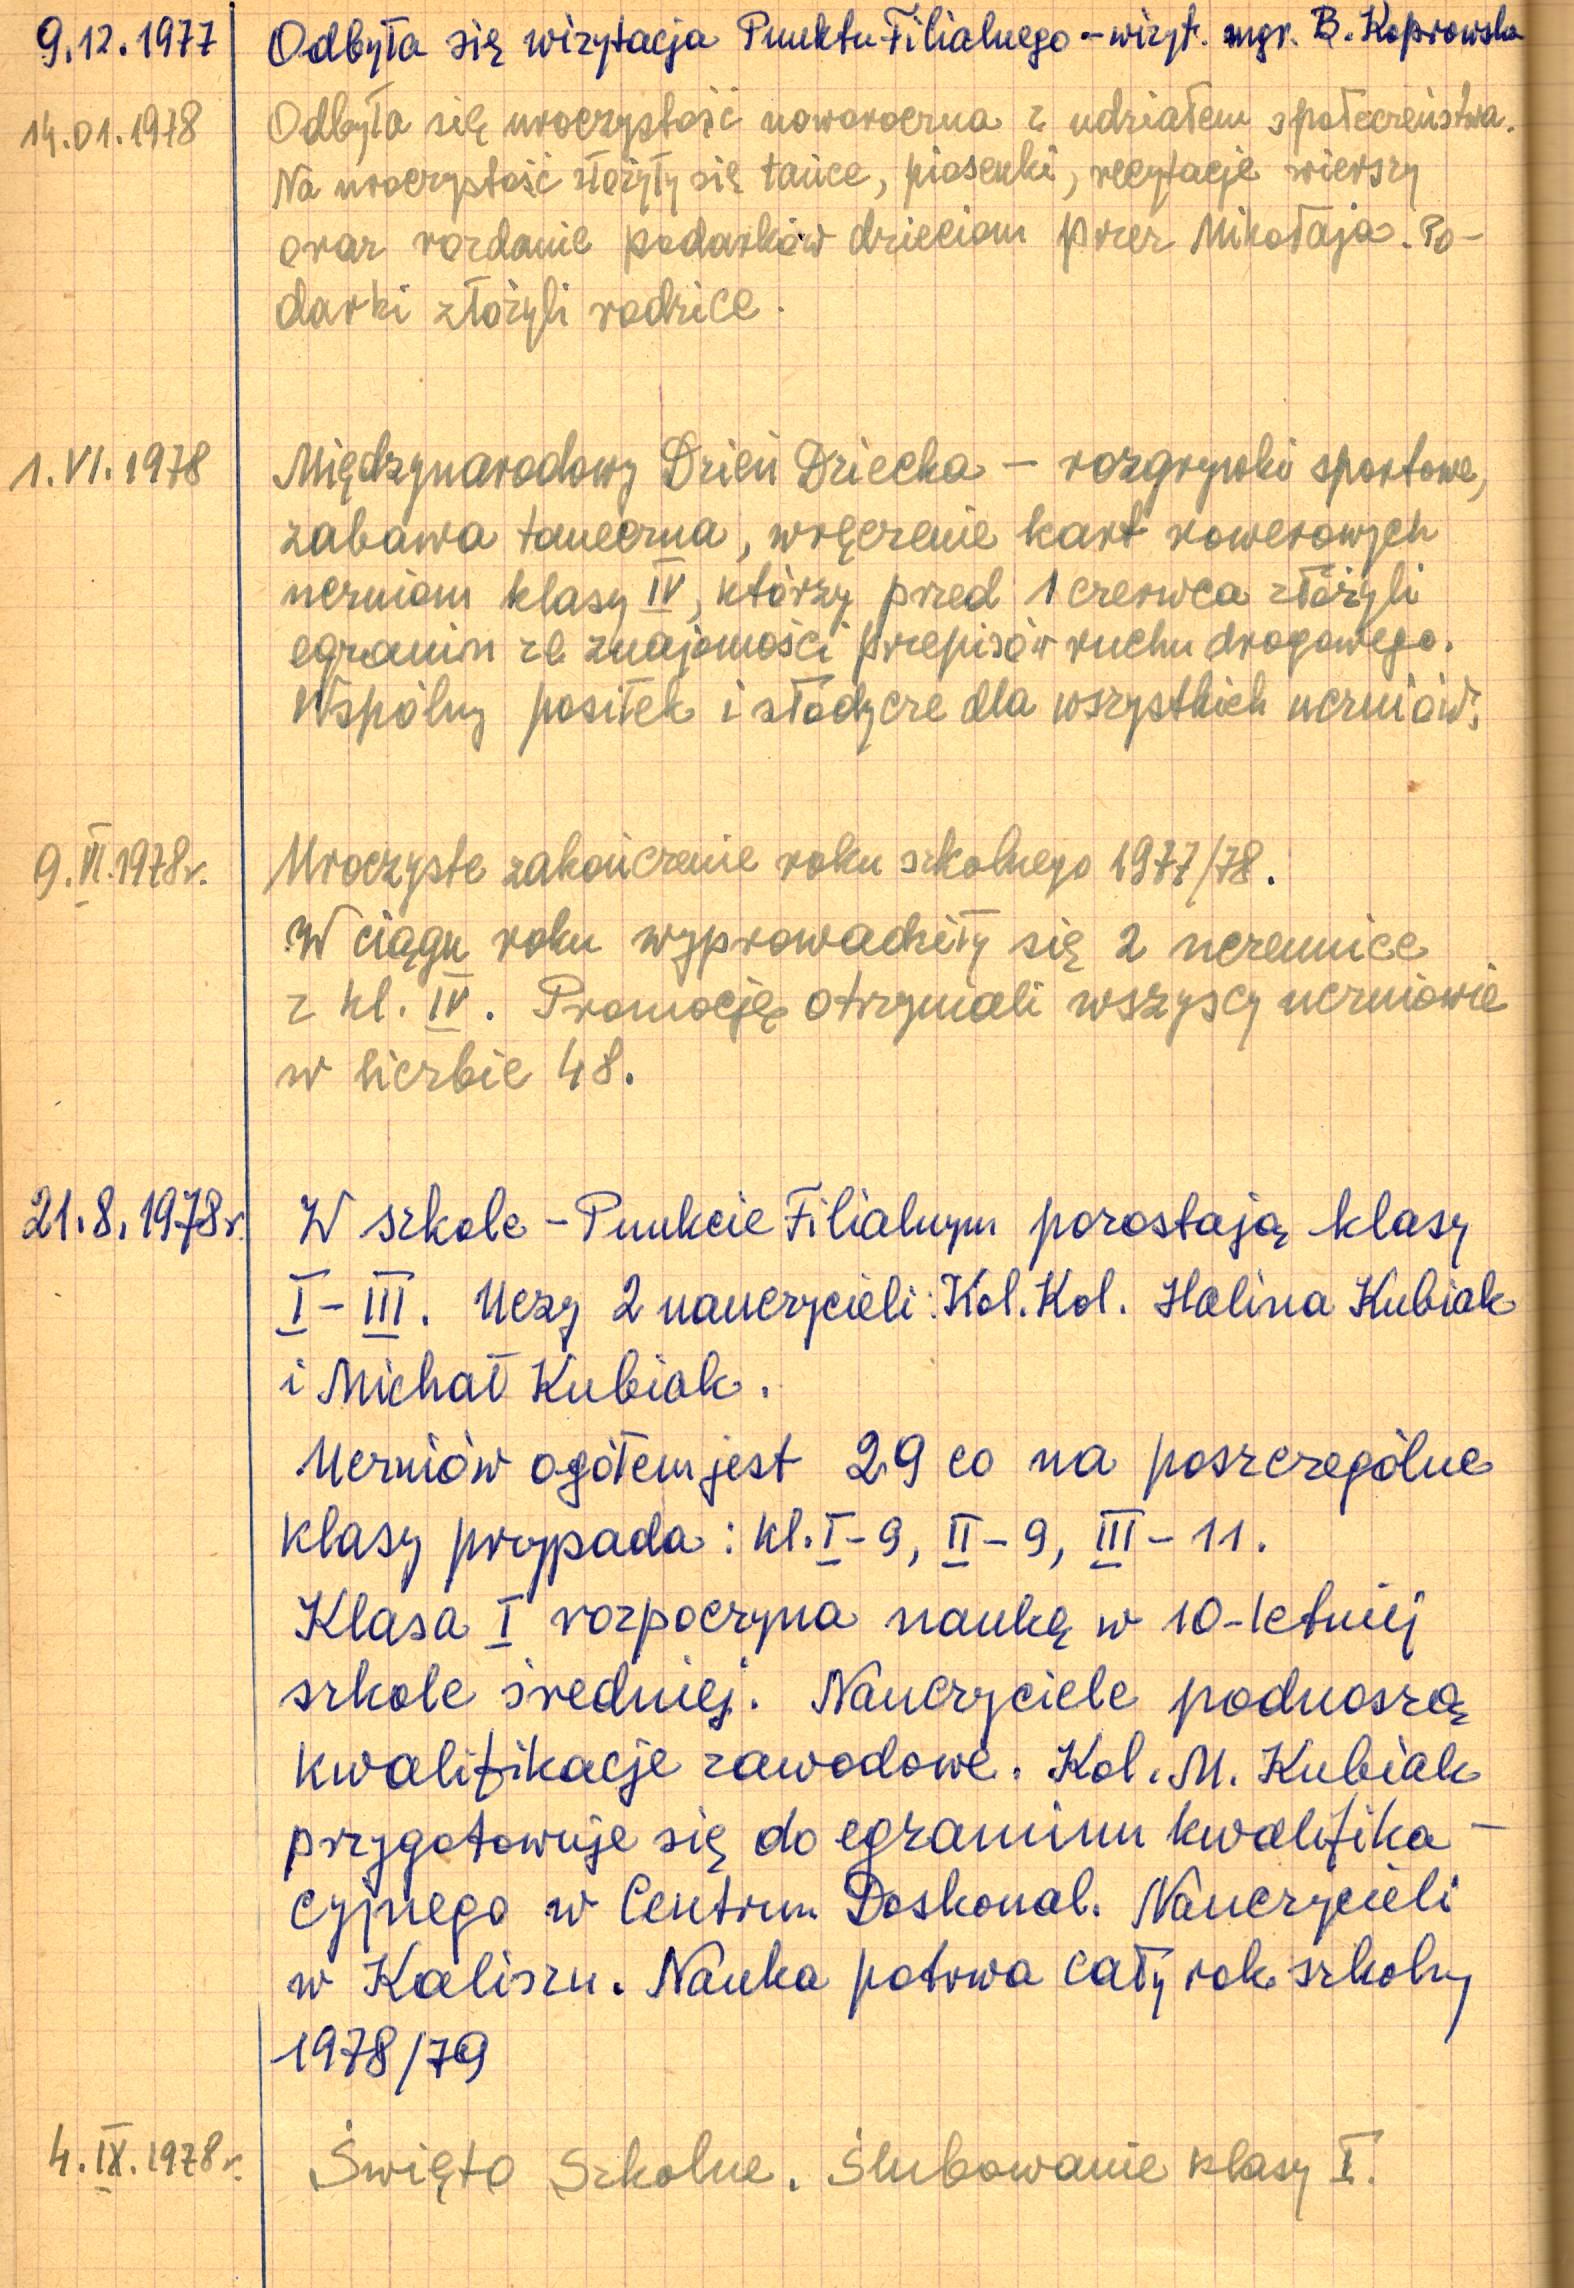 9.12.1977 Odbyła się wizytacja Punktu Filialnego - wizyt. mgr. B. Koprowska
14.01.1978 Odbyła się uroczystość noworoczna z udziałem społeczeństwa.
Na uroczystość złożyły się tańce, piosenki, recytacje wierszy
oraz rozdanie podarków dzieciom przez Mikołaja. Po-
darki złożyli rodzice.
1.VI.1978 Międzynarodowy Dzień Dziecka - rozgrywki sportowe,
zabawa taneczna, wręczenie kart rowerowych
uczniom klasy IV, którzy przed 1 czerwca złożyli
egzamin ze znajomości przepisów ruchu drogowego.
Wspólny posiłek i słodycze dla wszystkich uczniów.
9.VI.1978r. Uroczyste zakończenie roku szkolnego 1977/78.
W ciągu roku wyprowadziły się 2 uczennice
z kl. IV. Promocję otrzymali wszyscy uczniowie
w liczbie 48.
21.8.1978r. W szkole - Punkcie Filialnym pozostają klasy
I - III. Uczy 2 nauczycieli: Kol. Kol. Halina Kubiak
i Michał Kubiak.
Uczniów ogółem jest 29 co na poszczególne
klasy przypada: kl. I - 9, II - 9, III - 11.
Klasa I rozpoczyna naukę w 10-letniej
szkole średniej. Nauczyciele podnoszą
kwalifikacje zawodowe. Kol. M. Kubiak
przygotowuje się do egzaminu kwalifika-
cyjnego w Centrum Doskonal. Nauczycieli
w Kaliszu. Nauka potrwa cały rok szkolny
1978/79
4.IX.1978r. Święto Szkolne. Ślubowanie klasy I.